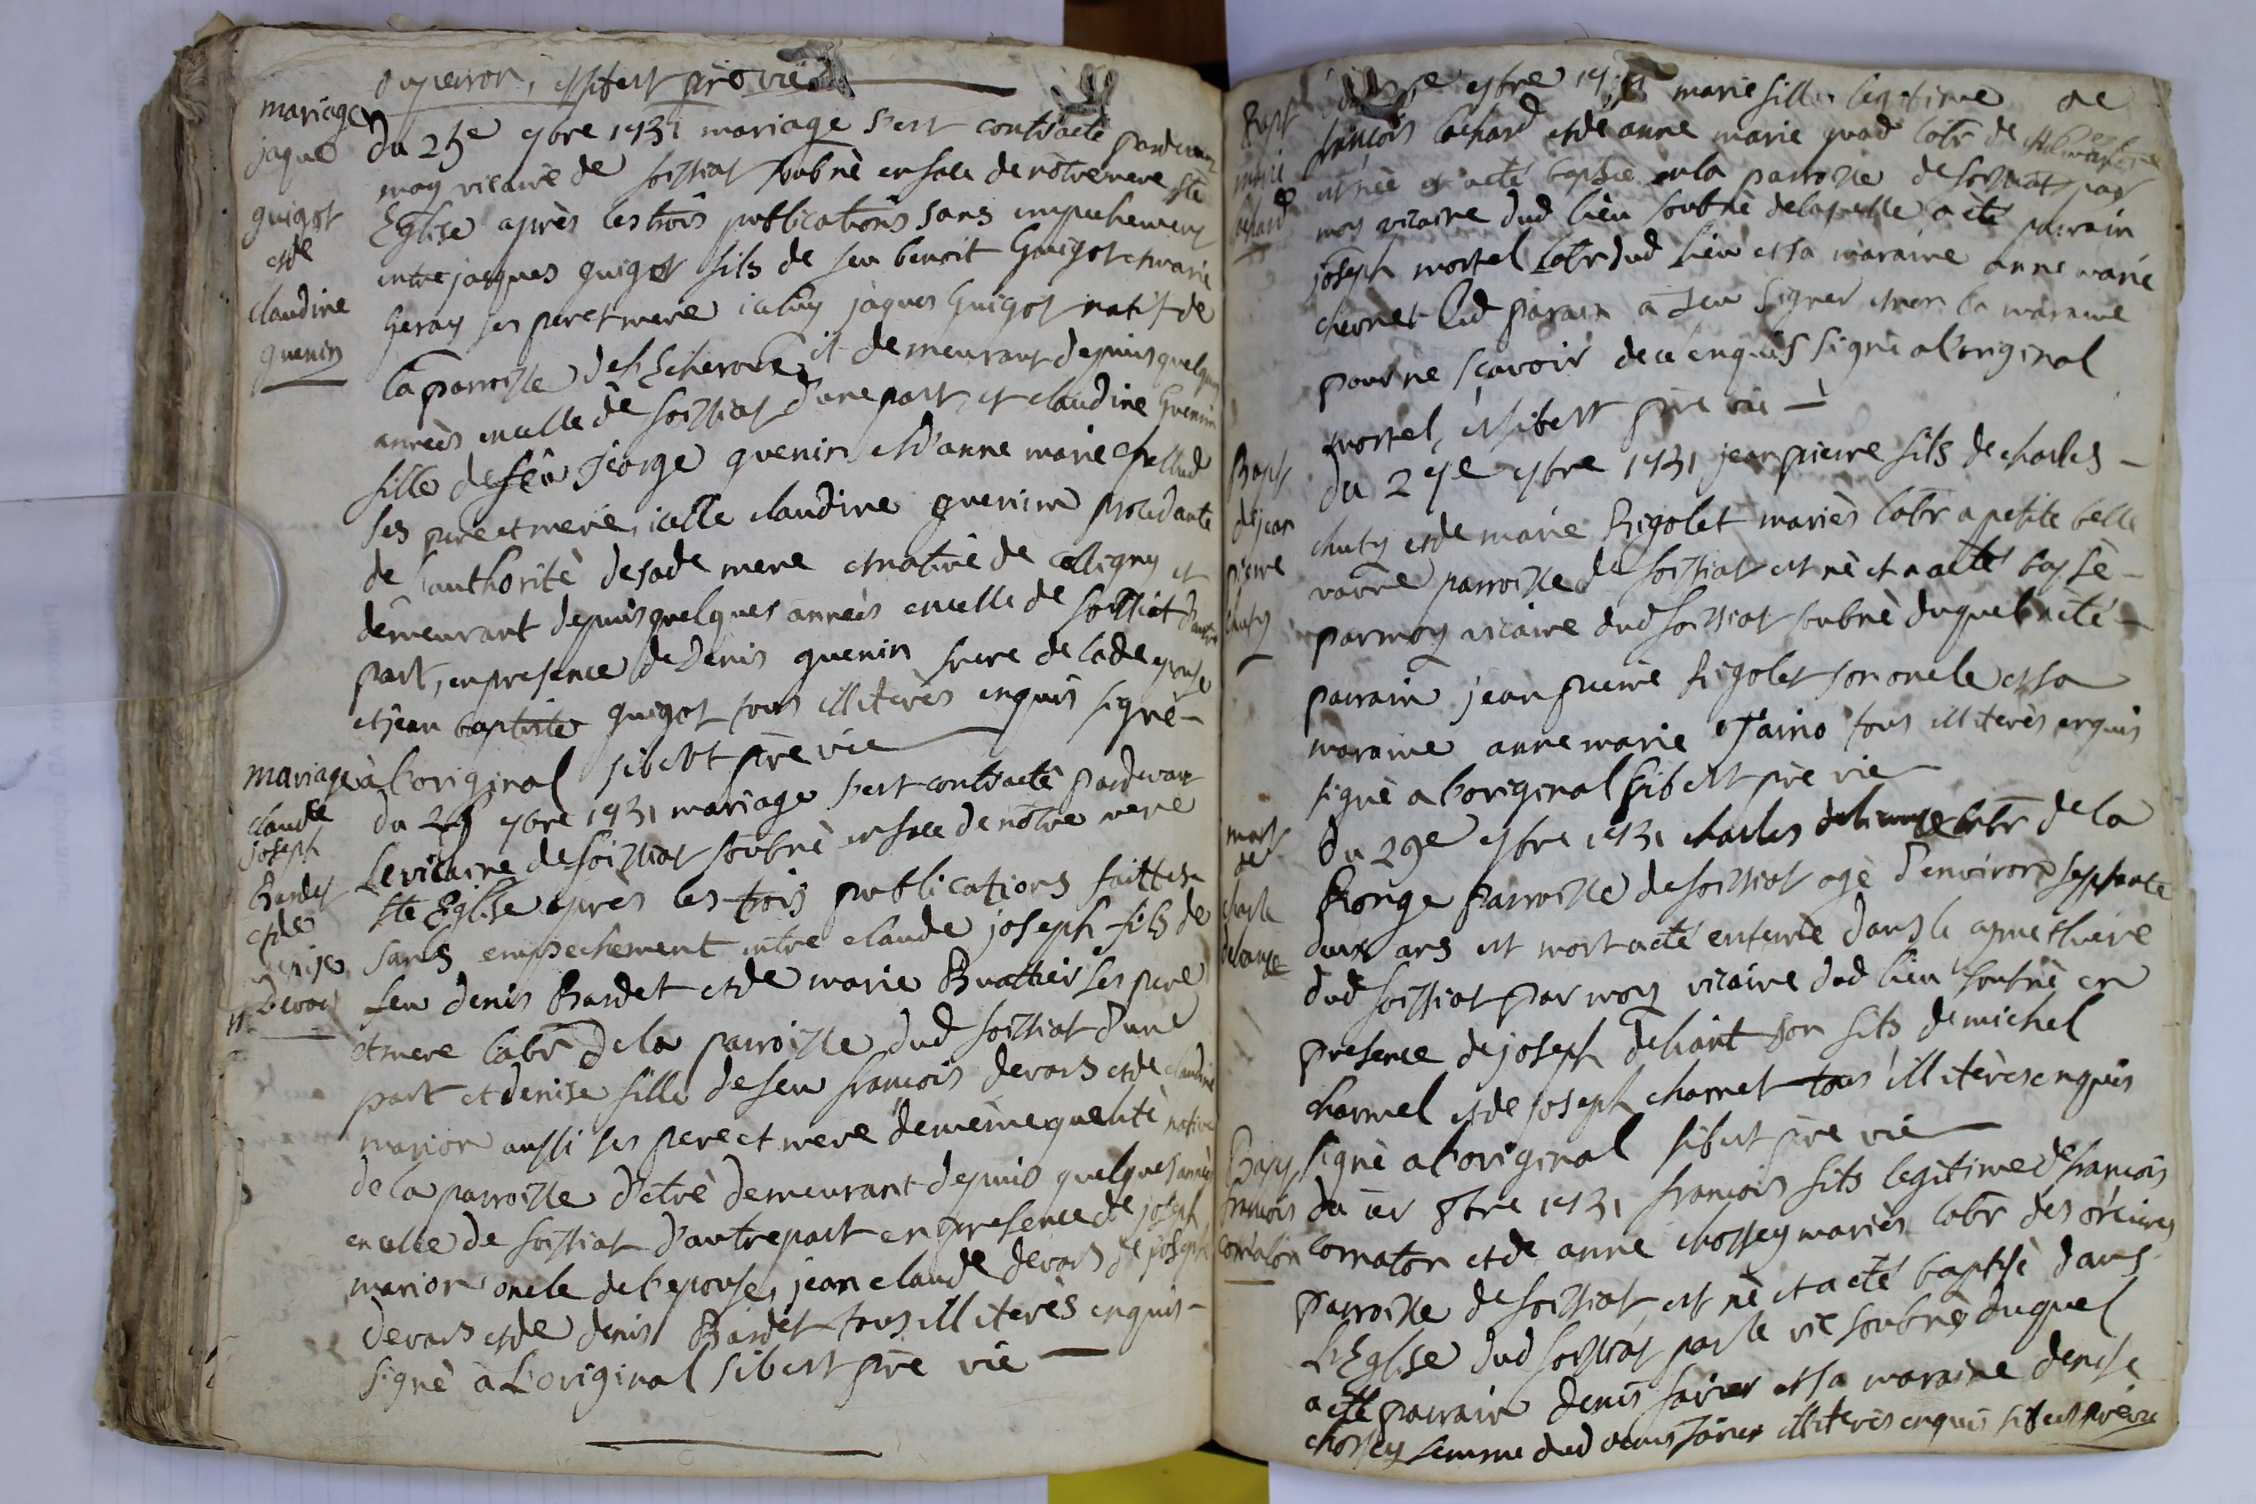 duperron, et sibert prê vic
mariage
jaque
guigot
et de
claudine
guenin
Du 25e 7bre 1731 mariage s'est contracté pardevant
moy vicaire de soissiat soubnè en face de nôtre mere ste
Eglise après les trois publications sans empechement
entre jacques guigot fils de feu benoit Guigot et marie
Geray ses pere et mere iceluy jàques Guigot natif de
la parroisse et demeurant depuis quelques
années en celle de soissiat d'une part, et claudine Guenin
fille de feu George guenin et d'anne marie
ses pere et mere, icelle claudine guenin procedante
de l'authorité de sade mere et native de Colligny et
demeurant depuis quelques années en celle de soissiat d'autre
part, en presence de Denis guenin frere de lade epouse
et jean baptiste guigot tous illiterès enquis signè
à l'original sibert prè vic
mariage
claude
joseph
Bardet
et de
denise
devais
du 7bre 1731 mariage s'est contractè pardevant
Le vicaire de soissiat soubnè en face de nôtre mere
ste Eglise après les trois publications faittes
sans empechement entre claude joseph fils de
feu denis Bardet et de marie Buattier ses pere
et mere labr de la parroisse dud soissiat d'une
part et denise fille de feu francois devais et de claudine
marion aussi ses pere et mere de mème quelité native
de la parroisse d'etrè demeurant depuis quelques années
en celle de soissiat d'autre part en presence de joseph
marion oncle de l'epouse, jean claude devais de joseph
devais et de denis Bardet tous illiterès enquis
signè à L'original sibert prè vic
Bapt
marie
bchard
7bre 1731 marie fille legitime de
francois bchard et de anne marie labr de
est nèe et a eté baptsèe en la parroisse de soissiat par
moy vicaire dud lieu soubnè de laquelle a eté parrain
joseph mortel labr dud lieu et sa maraine anne marie
chernet led parain a sceu signer et non la maraine
pour ne sçavoir de ce enquis signè a l'original
mortel, et sibert prè vic
Bapt
de jean
pierre
chaty
du 27e 7bre 1731 jean pierre fils de charles
chaty et de marie Rigolet mariès labr a petite belle
vavre parroisse de soissiat est nè et a eté bapsè
par moy vicaire dud soissiat soubnè duquel a eté
parrain jean pierre Rigolet son oncle et sa
maraine anne marie tous illiterès enquis
signè a l'original sibert prè vic
mort
de
charle
Du 29e 7bre 1731 charles labr de la
Ronge parroisse de soissiat agè d'environ septante
deux ans est mort a eté enterrè dans le cymethiere
dud soissiat par moy vicaire dud lieu soubnè en
presence de joseph son fils de michel
charnel et de joseph charnet tous illiterès enquis
signè a l'original sibert prè vic
Bapt
francois
cornaton
du ier 8bre 1731 francois fils legitime de francois
cornaton et de anne chossey mariès labr des
parroisse de soissiat est nè et a eté baptisè dans
L'Eglise dud soissiat par le vic soubnè duquel
a eté parrain denis et sa maraine denise
chossey femme dud denis illiterès enquis sibert prè vic